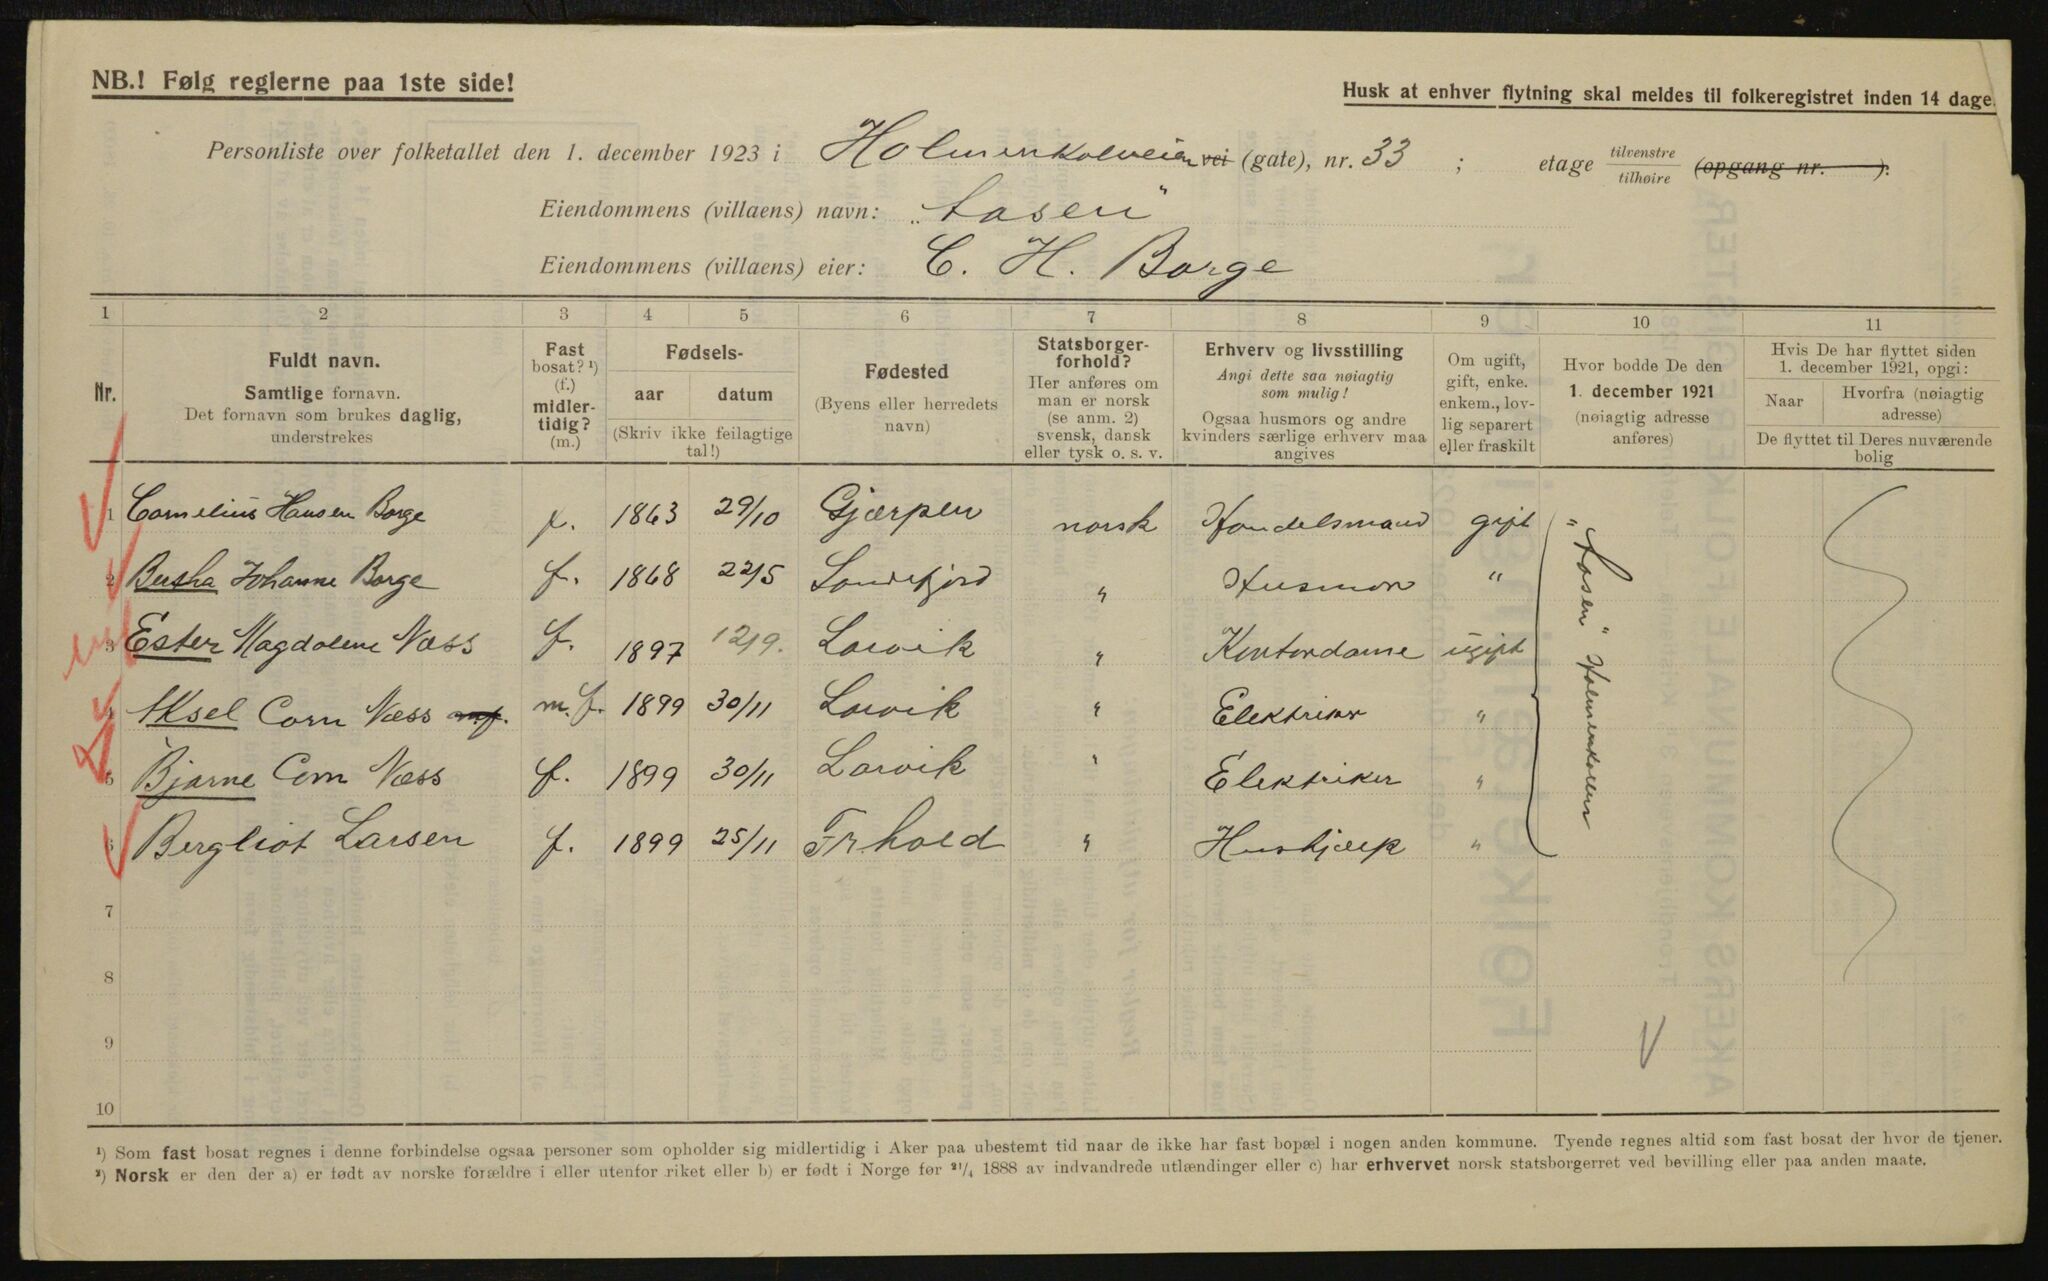 NB.! Følg reglerne paa 1ste side!
Husk at enhver flytning skal meldes til folkeregistret inden 14 dage.
Personliste over folketallet den 1. december 1923 i Holmenkolveien vei (gate), nr. 33 ; etage tilvenstre tilhøire (opgang nr. ).
Eiendommens (villaens) navn: "Aasen"
Eiendommens (villaens) eier: C. H. Borge
1 2 3 4 5 6 7 8 9 10 11
Nr.
Fuldt navn.
Samtlige fornavn.
Det fornavn som brukes daglig,
understrekes
Fast
bosat? ¹)
(f.)
midler-
tidig?
(m.)
Fødsels-
aar datum
(Skriv ikke feilagtige
tal!)
Fødested
(Byens eller herredets
navn)
Statsborger-
forhold?
Her anføres om
man er norsk
(se anm. 2)
svensk, dansk
eller tysk o. s. v.
Erhverv og livsstilling
Angi dette saa nøiagtig
som mulig!
Ogsaa husmors og andre
kvinders særlige erhverv maa
angives
Om ugift,
gift, enke.
enkem., lov-
lig separert
eller fraskilt
Hvor bodde De den
1. december 1921
(nøiagtig adresse
anføres)
Hvis De har flyttet siden
1. december 1921, opgi:
Naar Hvorfra (nøiagtig
adresse)
De flyttet til Deres nuværende
bolig
1 Cornelius Hansen Borge f. 1863 29/10 Gjærpen norsk Handelsmand gift
2 Bertha Johanne Borge f. 1868 22/5 Sandefjord " Husmor "
3 Ester Magdalene Næss f. 1897 12/9. Larvik " Kontordame ugift
4 Aksel Corn Næss m.f. m. f. 1899 30/11 Larvik " Elektriker "
5 Bjarne Corn Næss f. 1899 30/11 Larvik " Elektriker "
6 Bergliot Larsen f. 1899 25/11 "  Hushjælp "
"Aasen" Holmenkollen
7
8
9
10
¹) Som fast bosat regnes i denne forbindelse ogsaa personer som opholder sig midlertidig i Aker paa ubestemt tid naar de ikke har fast bopæl i nogen anden kommune. Tyende regnes altid som fast bosat der hvor de tjener.
²) Norsk er den der a) er født av norske forældre i eller utenfor riket eller b) er født i Norge før 21/4 1888 av indvandrede utlændinger eller c) har erhvervet norsk statsborgerret ved bevilling eller paa anden maate.